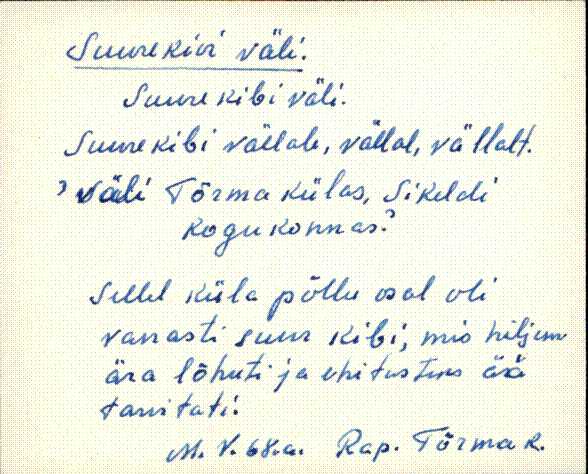 Suurekivi väli.
Suurekibi väli.
Suurekibi vällale, vällal, vällalt.
? Väli Tõrma külas, Sikeldi
kogukonnas?
Sellel küla põllu osal oli
vanasti suur kibi, mis hiljem
ära lõhuti ja ehitusteks ää
tarvitati.
M. V. 68.a. Rap. Tõrma k.